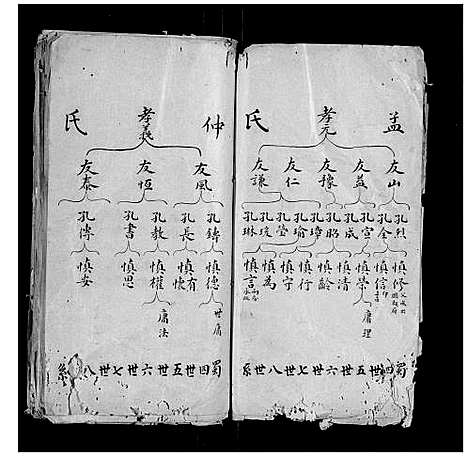 孟 孝元 氏
友山 友益 友豫 友仁 友謙
孔烈 孔全 孔宣 孔成 孔昭 孔璋 孔瑜 孔瑩 孔琼 孔琳
慎修 慎信 慎榮 慎清 慎齡 慎行 慎守 慎為 慎言
庸理
蜀四世五世六世七世八世系
仲 孝義 氏
友風 友恒 友泰
孔鑄 孔長 孔教 孔書 孔傳
慎德 慎有 慎懷 慎權 慎思 慎安
世庸 庸法
蜀四世五世六世七世八世系